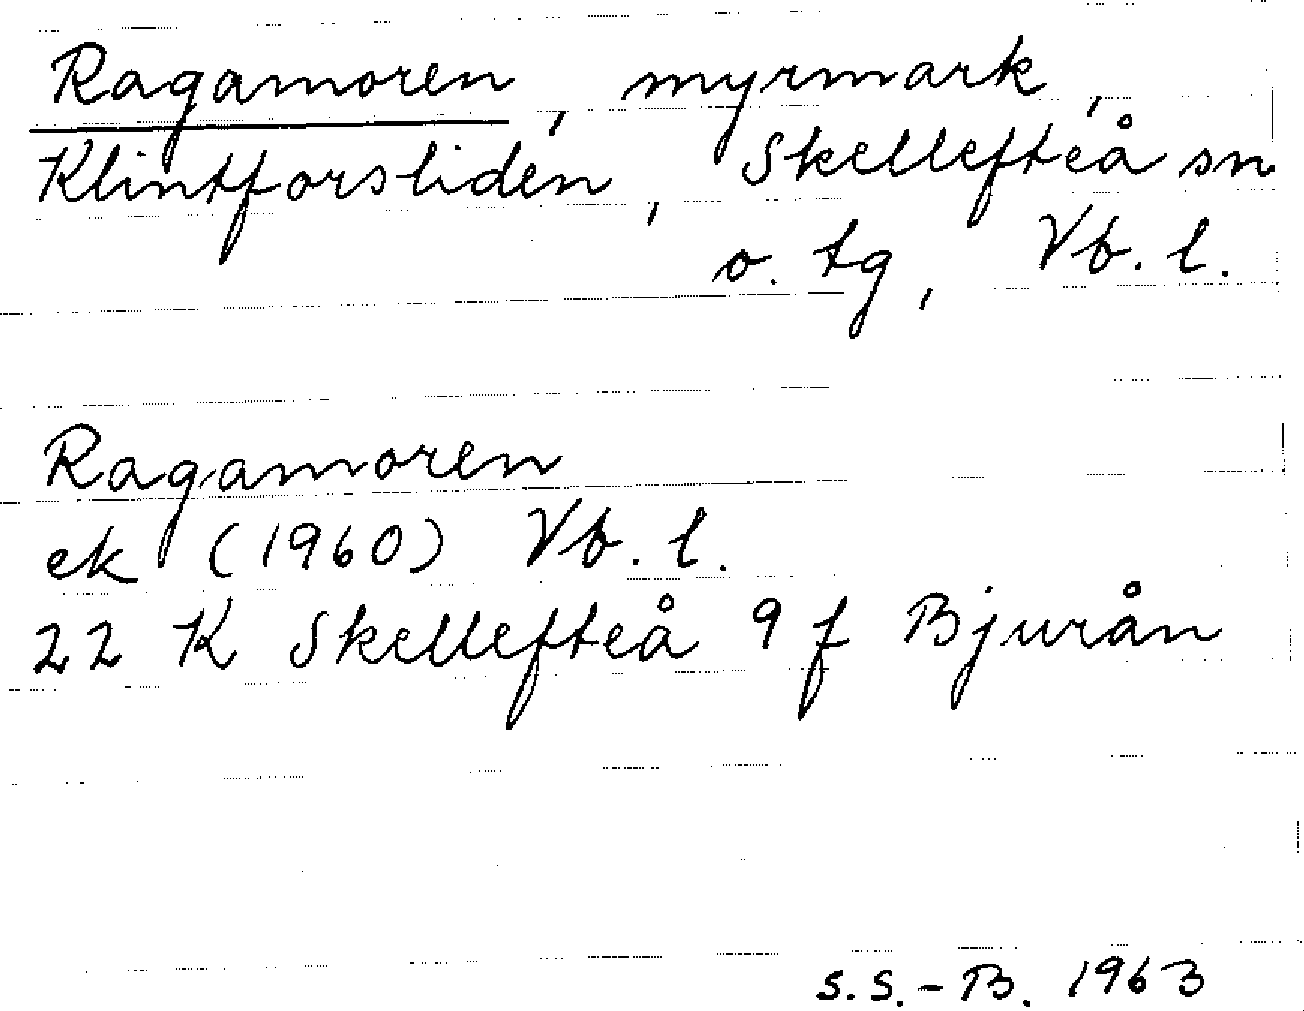 Ragamoren, myrmark,
Klintforsliden, Skellefteå sn
o. tg, Vb. l.
Ragamoren
ek (1960) Vb. l.
22 K Skellefteå 9 f Bjurån
S.S.-B. 1963